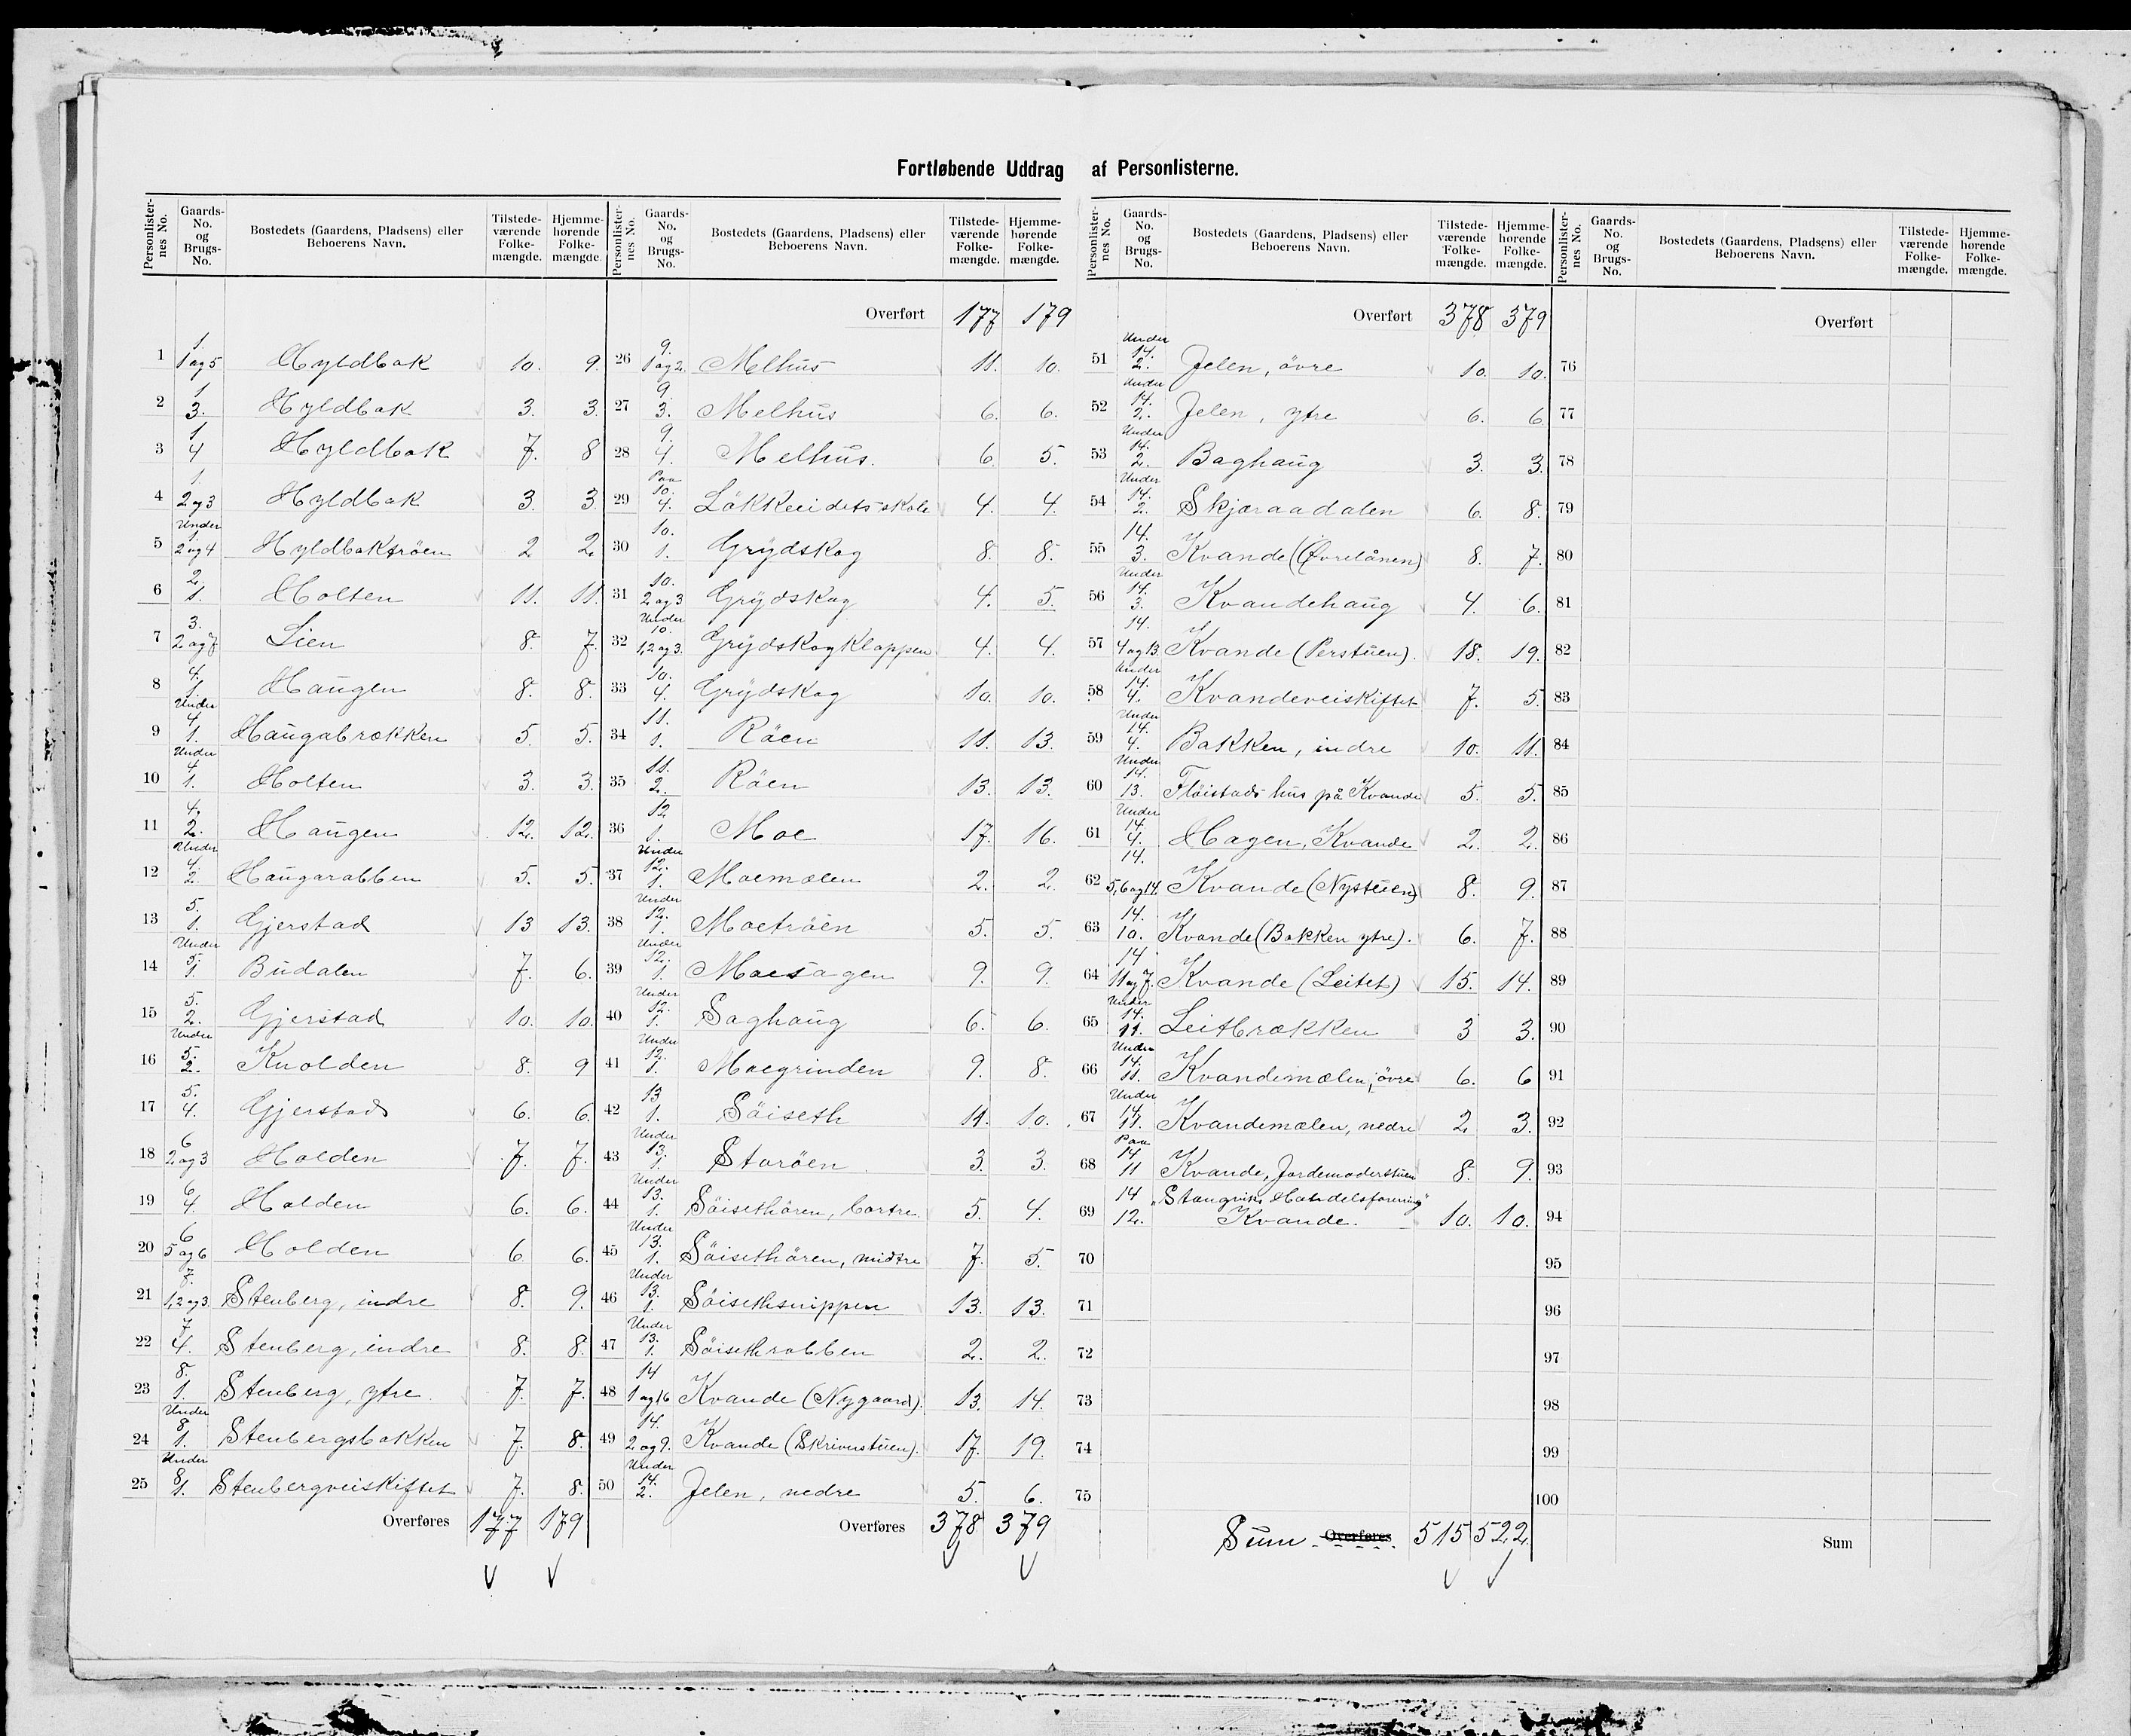 Fortløbende Uddrag af Personlisterne.
Personlister-nes No. Gaards-No. og Brugs-No. Bostedets (Gaardens, Pladsens) eller Beboerens Navn. Tilstede-værende Folke-mængde. Hjemme-hørende Folke-mængde.
Personlister-nes No. Gaards-No. og Brugs-No. Bostedets (Gaardens, Pladsens) eller Beboerens Navn. Tilstede-værende Folke-mængde. Hjemme-hørende Folke-mængde.
Personlister-nes No. Gaards-No. og Brugs-No. Bostedets (Gaardens, Pladsens) eller Beboerens Navn. Tilstede-værende Folke-mængde. Hjemme-hørende Folke-mængde.
Personlister-nes No. Gaards-No. og Brugs-No. Bostedets (Gaardens, Pladsens) eller Beboerens Navn. Tilstede-værende Folke-mængde. Hjemme-hørende Folke-mængde.
1 1. 1 og 5 Hyldbak 10. 9.
2 1 3. Hyldbak 3. 3.
3 1 4 Hyldbak 7. 8
4 1. 2 og 3 Hyldbak 3. 3
5 Under 1. 2 og 4 Hyldbaktröen 2 2.
6 2. 1. Holten 11. 11.
7 3. 2 og 7 Lien 8. 7.
8 4. 1. Haugen 8. 8.
9 Under 4. 1. Haugabrækken 5. 5.
10 Under 4. 1. Holten 3. 3.
11 4. 2. Haugen 12. 12.
12 Under 4. 2. Haugarabben 5. 5.
13 5. 1. Gjerstad 13 13.
14 Under 5. 1. Budalen 7. 6.
15 5. 2. Gjerstad 10. 10.
16 Under 5. 2. Knolden 8. 9
17 5. 4. Gjerstad 6. 6.
18 6 2 og 3 Holden 7. 7.
19 6 4. Holden 6. 6.
20 6 5 og 6 Holden 6. 6.
21 7. 1, 2 og 3. Stenberg, indre 8. 9.
22 7 4. Stenberg, indre 8. 8.
23 8. 1. Stenberg, ytre. 7. 7.
24 Under 8 1. Stenbergsbakken 7. 8.
25 Under 8. 1. Stenbergveiskiftet 7. 8.
Overføres 177 179
Overført 177 179
26 9. 1 og 2. Melhus 11. 10.
27 9. 3. Melhus 6. 6.
28 9. 4. Melhus. 6. 5.
29 Paa 10. 4. Lökkeidets skole 4. 4.
30 10. 1. Grydskog 8. 8.
31 10. 2 og 3 Grydskog 4. 5.
32 Under 10. 1, 2 og 3. Grydskogkloppen 4. 4.
33 10. 4. Grydskog 10. 10.
34 11. 1. Röen 11. 13.
35 11. 2. Röen 13. 13.
36 12 1. Moe 17. 16.
37 Under 12. 1. Moemælen 2. 2.
38 Under 12. 1. Moetröen 5. 5.
39 Under 12. 1. Moesagen 9. 9.
40 Under 12. 1. Saghaug 6. 6.
41 Under 12. 1. Moegrinden 9. 8.
42 13 1. Söiseth 11. 10.
43 Under 13. 1. Storöen 3. 3.
44 Under 13. 1. Söisethören, bortre. 5. 4.
45 Under 13. 1. Söisethören, midtre 7. 5.
46 Under 13. 1. Söisethsnippen 13. 13.
47 Under 13. 1. Söisethrabben 2. 2.
48 14 1 og 16 Kvande (Nygaard). 13. 14.
49 14. 2 og 9. Kvande (Skriverstuen). 17. 19.
50 Under 14. 2. Jelen, nedre 5. 6.
Overføres 378 379
Overført 378 379
51 Under 14. 2. Jelen, övre 10. 10.
52 Under 14. 2. Jelen, ytre 6. 6
53 Under 14. 2. Baghaug 3. 3.
54 Under 14. 2. Skjæraadalen 6. 8.
55 14. 3. Kvande (Øvrelånen) 8. 7.
56 Under 14. 3. Kvandehaug 4. 6.
57 14. 4 og 13. Kvande (Perstuen). 18. 19.
58 Under 14. 4. Kvandeveiskiftet 7. 5.
59 Under 14. 4. Bakken, indre 10. 11.
60 Under 14. 13. Flöistads hus på Kvande 5. 5.
61 Under 14. 4. Hagen, Kvande 2. 2.
62 14. 5, 6 og 14. Kvande (Nystuen) 8. 9.
63 14. 10. Kvande (Bakken ytre). 6. 7.
64 14 11 og 7. Kvande (Leitet) 15. 14.
65 Under 14. 11. Leitbrækken 3 3.
66 Under 14. 11. Kvandemælen, övre 6. 6
67 Under 14. 11. Kvandemælen, nedre 2. 3.
68 Paa 14 11 Kvande, Jordemoderstuen 8. 9.
69 14 12. "Stangviks Handelsforening"
Kvande. 10. 10.
70
71
72
73
74
75
Sum Overføres 515 522.
Overført
76
77
78
79
80
81
82
83
84
85
86
87
88
89
90
91
92
93
94
95
96
97
98
99
100
Sum